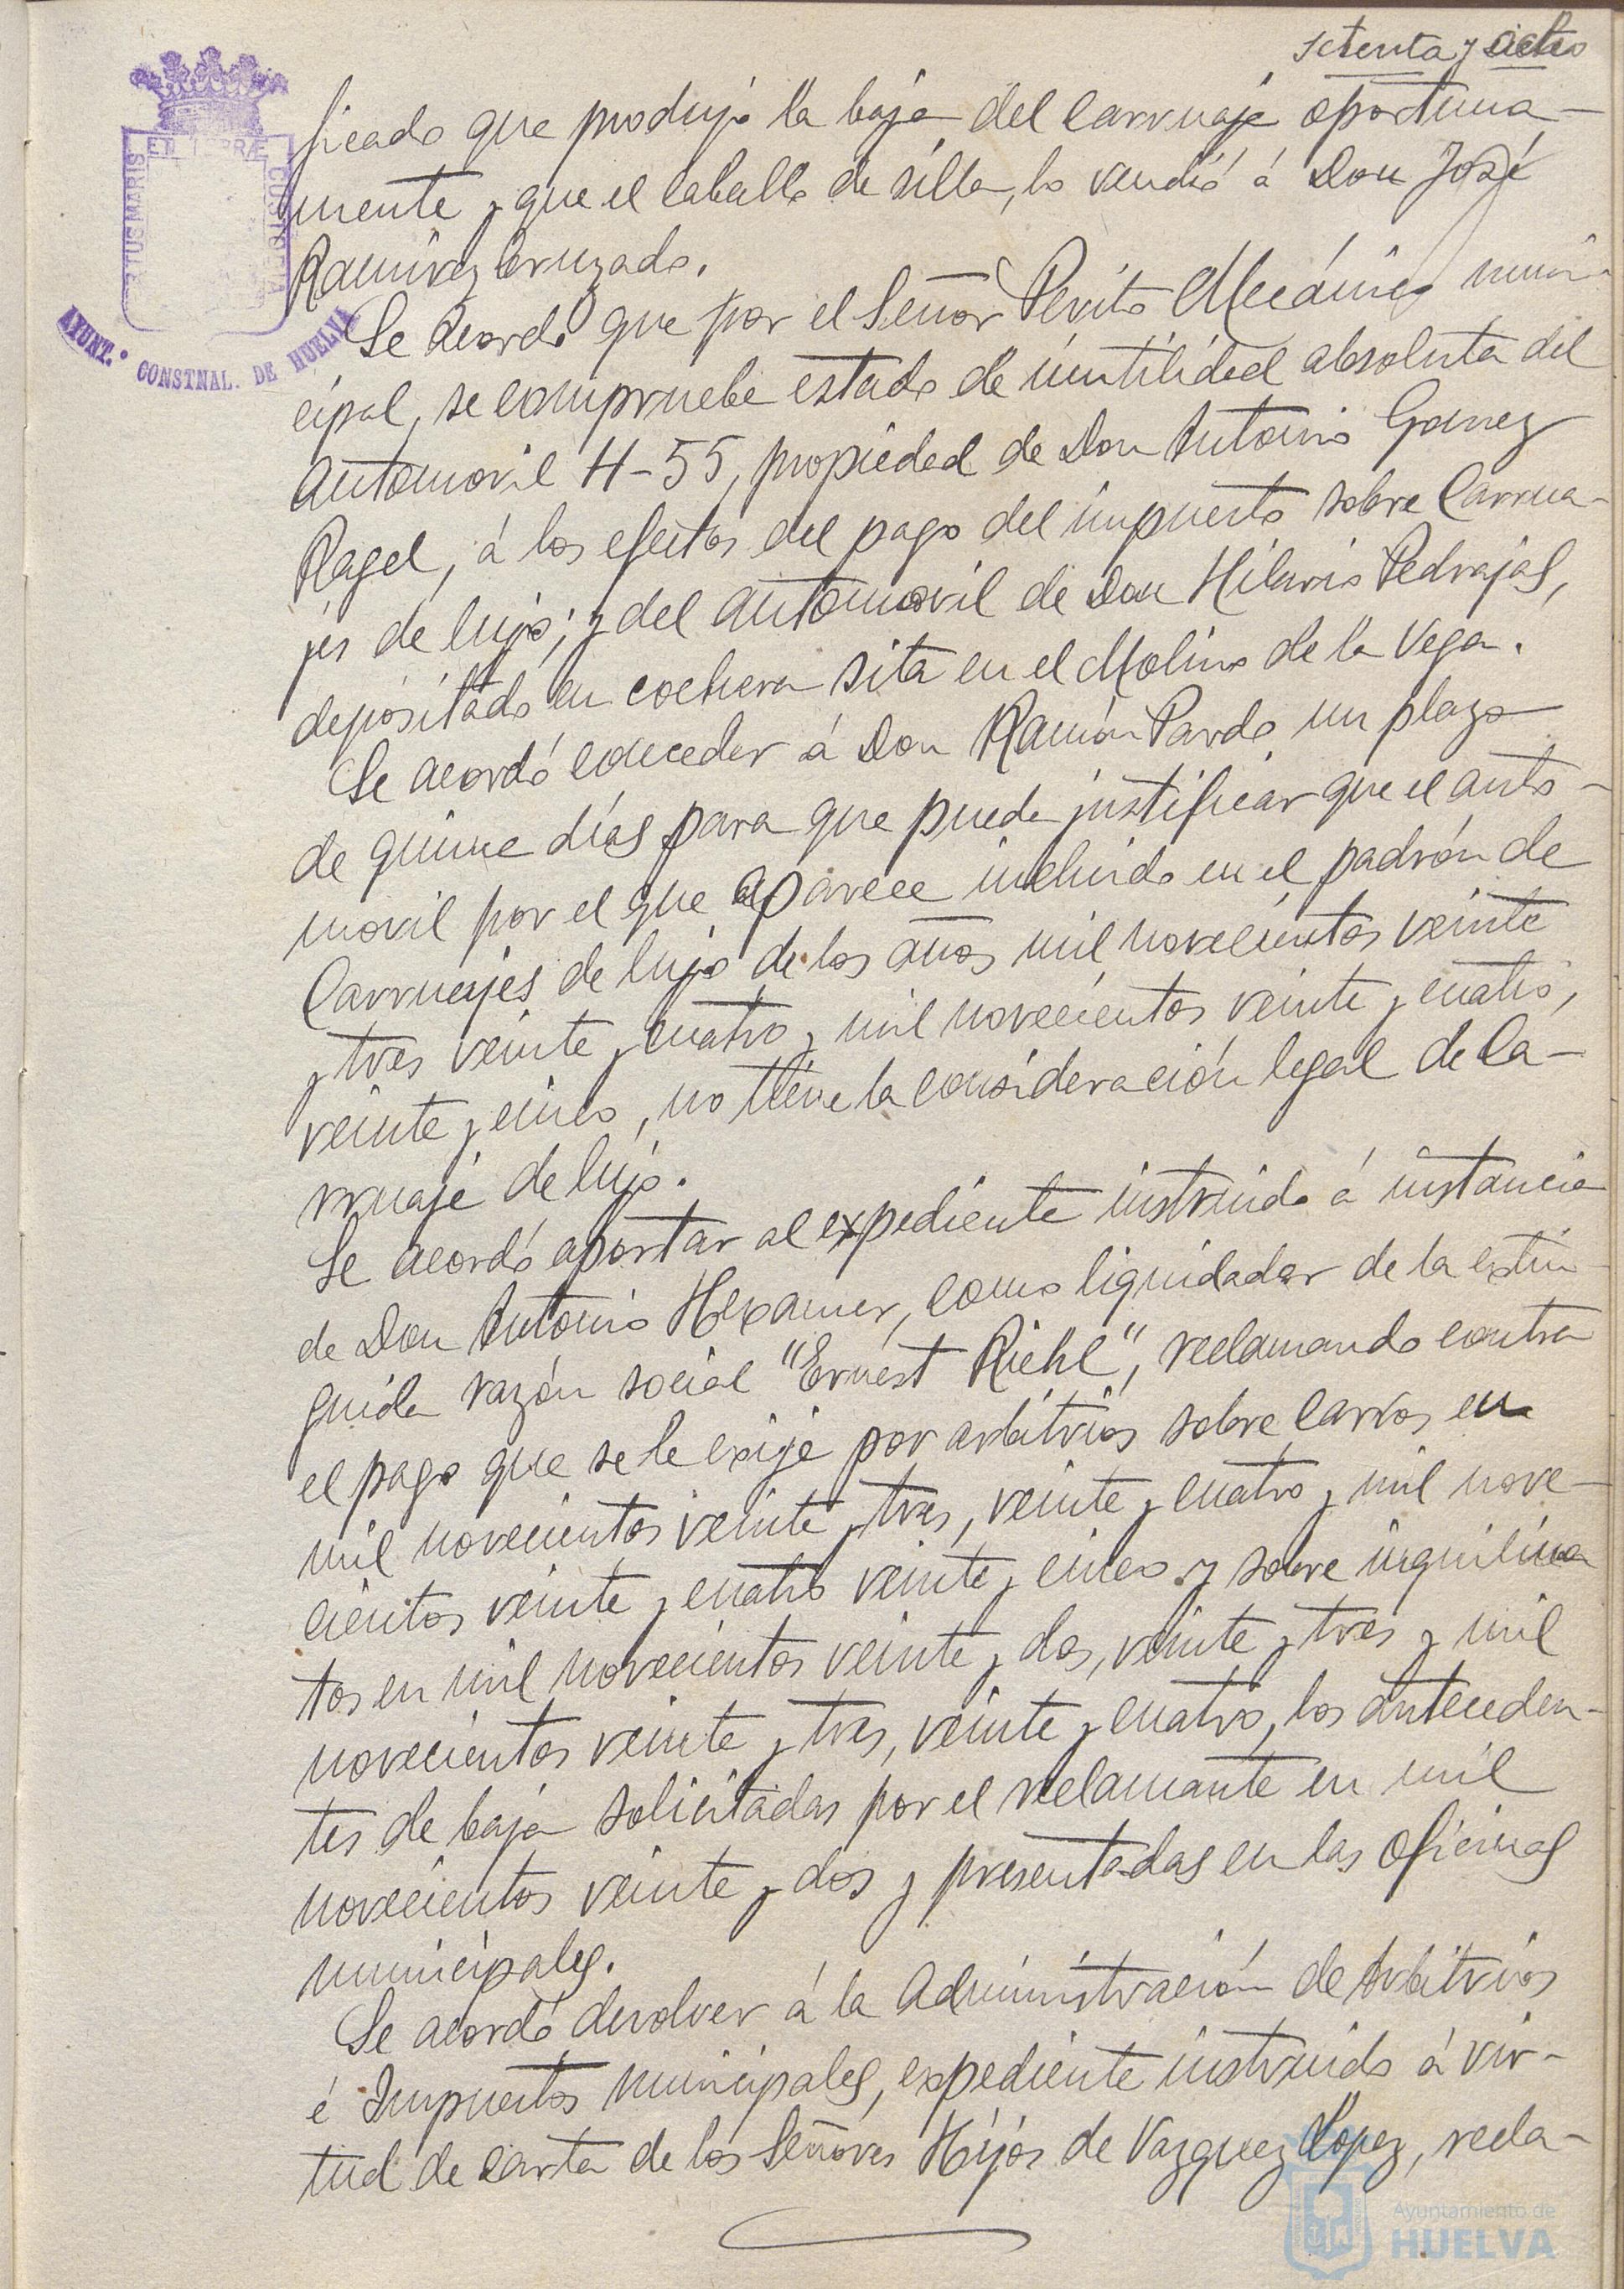 setenta y ocho
ficado que produjo la baja del carruaje oportuna-
mente y que el caballo de silla, lo vendió á Don José
Ramírez Cruzado.
Se acordó que por el Señor Perito Mecánico muni-
cipal, se compruebe estado de inutilidad absoluta del
automovil H-55, propiedad de Don Antonio Gomez
Ragel, á los efectos del pago del impuesto sobre Carrua-
jes de lujo; y del automovil de Don Hilario Pedrajas,
depositado en cochera sita en el Molino de la Vega.
Se acordó conceder á Don Ramón Pardo un plazo
de quince días para que pueda justificar que el auto-
movil por el que aparece incluido en el padrón de
Carruajes de lujo de los años mil novecientos veinte
y tres veinte y cuatro y mil novecientos veinte y cuatro,
veinte y cinco, no tiene la consideración legal de Ca-
rruaje de lujo.
Se acordó aportar al expediente instruido á instancia
de Don Antonio Hexamer, como liquidador de la extin-
guida razón social "Ernest Riehl", reclamando contra
el pago que se le exije por arbitrios sobre carros en
mil novecientos veinte y tres, veinte y cuatro y mil nove-
cientos veinte y cuatro veinte y cinco y sobre inquilina
tos en mil novecientos veinte y dos, veinte y tres y mil
novecientos veinte y tres, veinte y cuatro, los anteceden-
tes de baja solicitadas por el reclamante en mil
novecientos veinte y dos y presentadas en las oficinas
municipales.
Se acordó devolver á la Administración de Arbitrios
é Impuestos municipales, expediente instruido á vir-
tud de carta de los Señores Hijos de Vazquez Lopez, recla-
AYUNT.º CONSTNAL. DE HUELVA
Ayuntamiento de
HUELVA